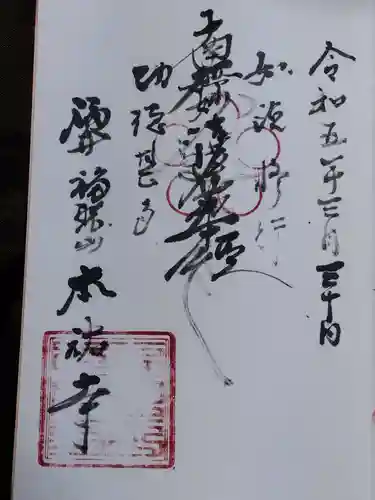 令和五年三月三十日
如説修行
南無妙法蓮華経
功徳甚多
福聚山 本祐寺